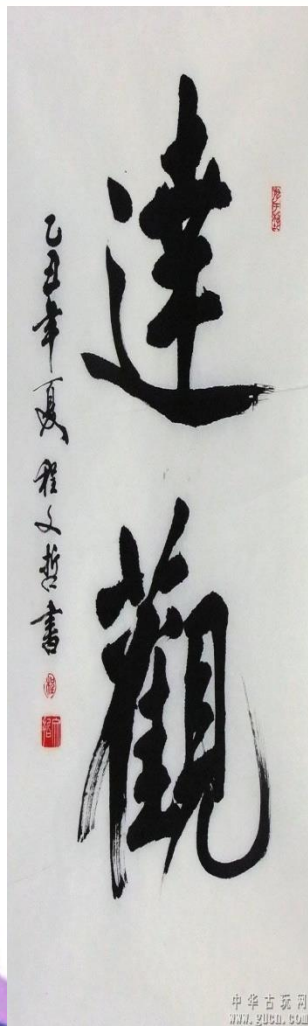 達觀
乙丑年夏 程文哲書
中华古玩网
www.gucn.com